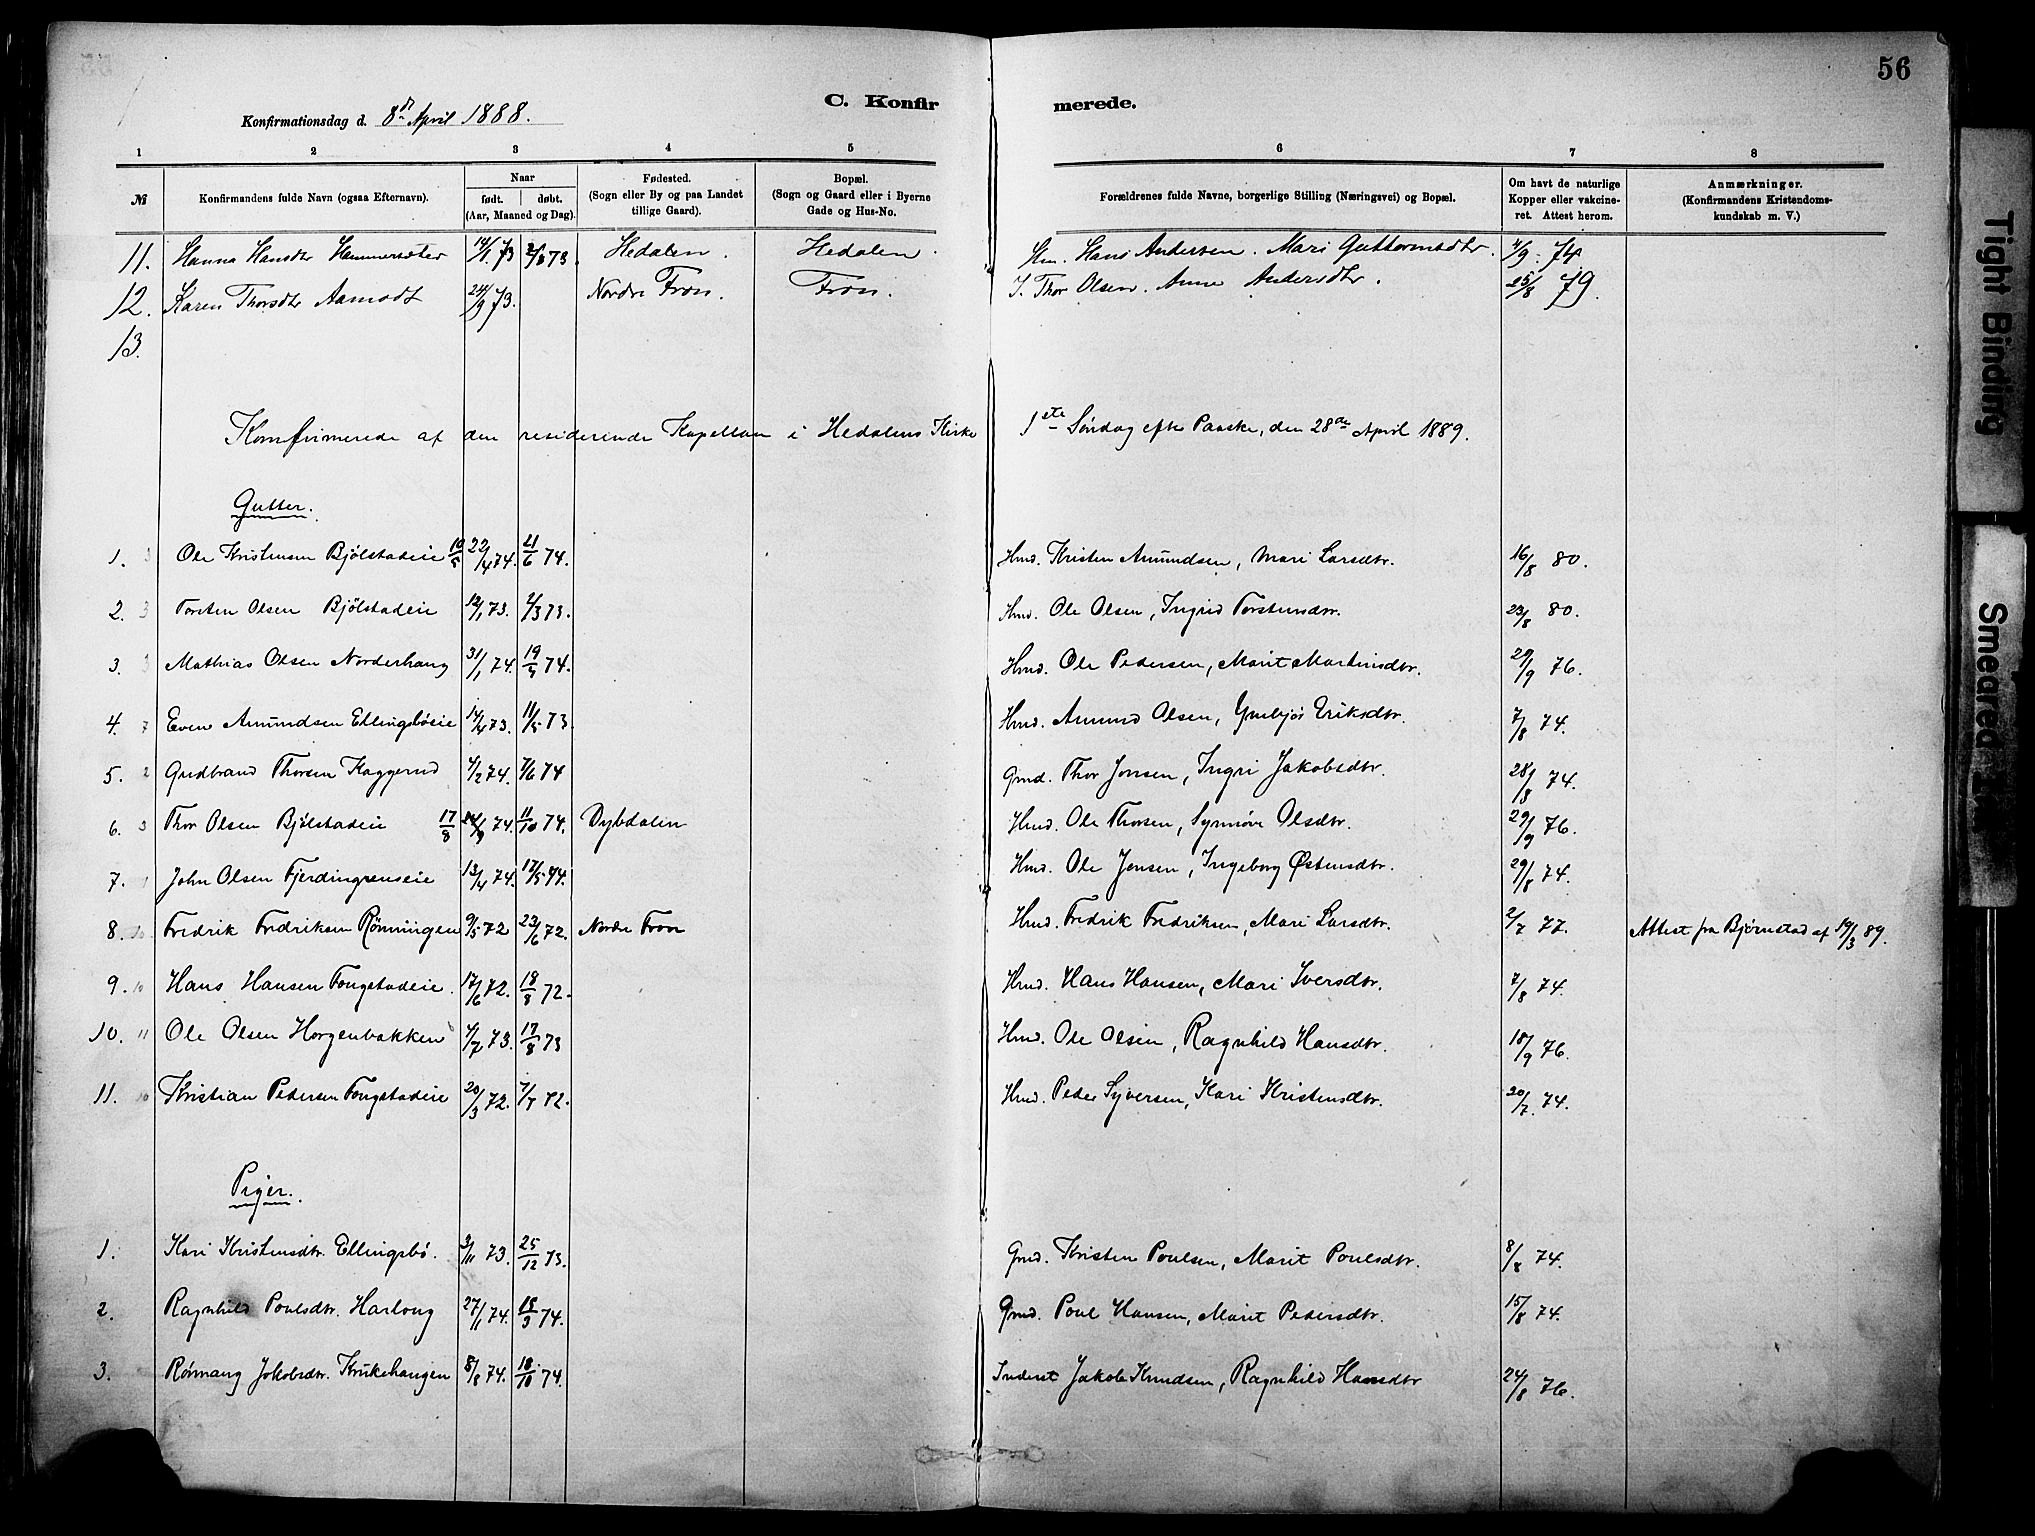 56
C. Konfir merede.
Konfirmationsdag d. 8de April 1888.
1 2 3 4 5 6 7 8
№ Konfirmandens fulde Navn (ogsaa Efternavn). Naar født. døbt. (Aar, Maaned og Dag). Fødested. (Sogn eller By og paa Landet tillige Gaard). Bopæl. (Sogn og Gaard eller i Byerne Gade og Hus-No. Forældrenes fulde Navne, borgerlige Stilling (Næringsvei) og Bopæl. Om havt de naturlige Kopper eller vakcineret. Attest herom. Anmærkninger. (Konfirmandens Kristendomskundskab m. V.)
11. Hanna Hansdtr Hammersæter 14/1 73 2/3 73. Hedalen. Hedalen. Hm. Hans Andersen. Mari Guttormsdtr. 4/9. 74
12. Karen Thorsdtr Aamodt 24/9 73. Nordre Fron. Fron. I. Thor Olsen. Anne Andersdtr. 25/8 79.
13.
Konfirmerede af den residerende Kapellan i Hedalens Kirke 1ste Søndag efter Paaske, den 28de April 1889.
Gutter.
1. 3 Ole Kristensen Bjølstadeie 10/5 22/4 74. 21/6 74. Hmd. Kristen Amundsen, Mari Larsdtr. 16/8 80.
2. 3 Torsten Olsen Bjølstadeie 12/1 73. 2/3 73. Hmd. Ole Olsen, Ingrid Torstensdtr. 23/8 80.
3. 3 Mathias Olsen Norderhaug 31/1 74. 19/4 74. Hmd. Ole Pedersen, Marit Martinsdtr. 29/9 76.
4. 7 Even Amundsen Ellingsbøeie 14/4 73. 11/5 73. Hmd. Amund Olsen, Gunbjør Eriksdtr. 7/8 74.
5. 2 Gudbrand Thorsen Kaggerud 4/2 74. 7/6 74 Gmd. Thor Jonsen, Ingri Jakobsdtr. 28/8 74.
6. 3 Thor Olsen Bjølstadeie 17/8 74. 11/10 74. Dybdalen Hmd. Ole Thorsen, Synnøve Olsdtr. 29/9 76.
7. John Olsen Fjerdingrenseie 13/4 74. 17/5 74. Hmd. Ole Jensen, Ingeborg Østensdtr. 29/8 74.
8. 10 Fredrik Fredriksen Rønningen 9/5 72 23/6 72. Nordre Fron Hmd. Fredrik Fredriksen, Mari Larsdtr. 2/7 77. Attest fra Bjørnstad af 19/3 89.
9. 10 Hans Hansen Tongstadeie. 17/6 72. 18/8 72. Hmd. Hans Hansen, Mari Iversdtr. 7/8 74.
10. 11 Ole Olsen Horgenbakken 4/7 73. 17/8 73 Hmd. Ole Olsen, Ragnhild Hansdtr. 18/9 76.
11. 10 Kristian Pedersen Tongstadeie 20/3 72. 7/7 72. Hmd. Peder Syversen, Kari Kristensdtr. 20/7. 74.
Piger.
1. Kari Kristensdtr. Ellingsbø. 3/11 73. 25/12 73. Gmd. Kristen Poulsen, Marit Poulsdtr. 8/8 74.
2. Ragnhild Poulsdtr. Harlaug 27/1 74. 15/3 74. Gmd. Poul Hansen, Marit Pedersdtr. 15/8 74.
3. Rønnaug Jakobsdtr. Krukehaugen 8/8 74. 18/10 74. Inderst Jakob Knudsen, Ragnhild Hansdtr 24/8 76.
Tight Binding
Smeared Ink